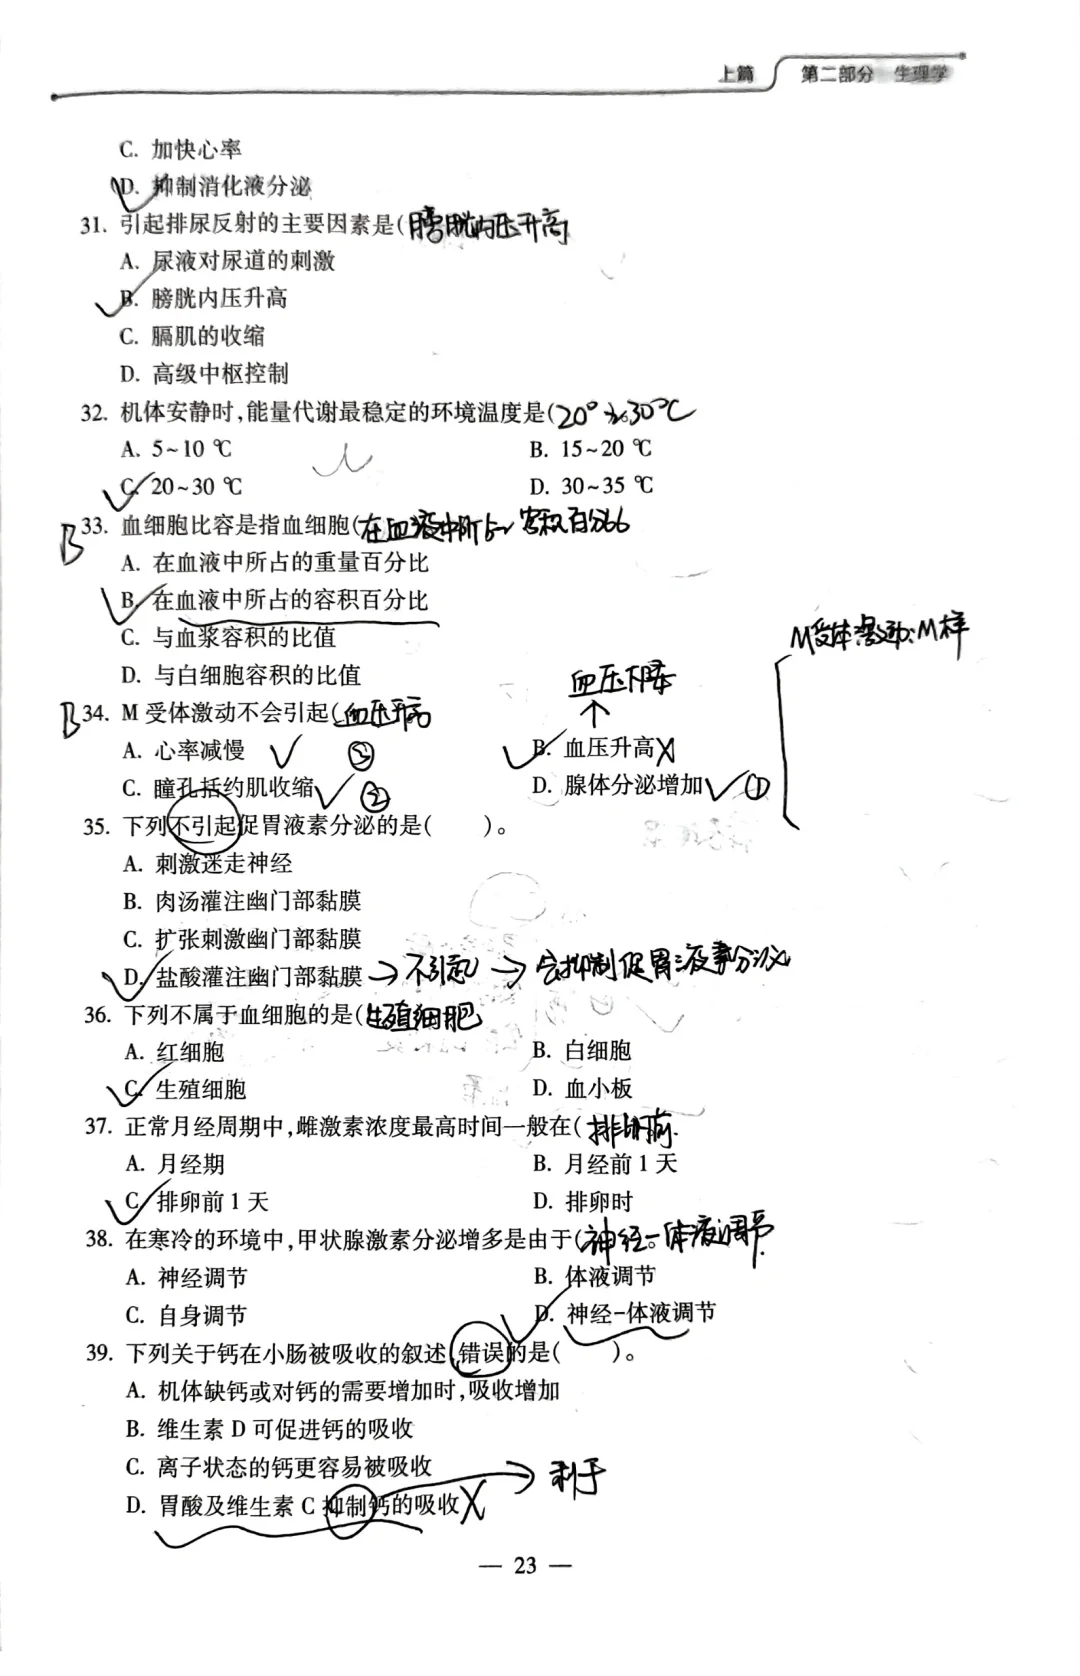 上篇 第二部分 生理学
C. 加快心率
D. 抑制消化液分泌
31. 引起排尿反射的主要因素是(膀胱内压升高
A. 尿液对尿道的刺激
B. 膀胱内压升高
C. 膈肌的收缩
D. 高级中枢控制
32. 机体安静时,能量代谢最稳定的环境温度是(20°~30℃
A. 5~10 ℃ B. 15~20 ℃
C. 20~30 ℃ D. 30~35 ℃
B 33. 血细胞比容是指血细胞(在血液中所占容积百分比
A. 在血液中所占的重量百分比
B. 在血液中所占的容积百分比
C. 与血浆容积的比值
D. 与白细胞容积的比值
M受体激动:M样
血压下降
B 34. M 受体激动不会引起(血压升高
A. 心率减慢 ③ B. 血压升高
C. 瞳孔括约肌收缩 ② D. 腺体分泌增加 ①
35. 下列不引起促胃液素分泌的是( )。
A. 刺激迷走神经
B. 肉汤灌注幽门部黏膜
C. 扩张刺激幽门部黏膜
D. 盐酸灌注幽门部黏膜→不引起→会抑制促胃液素分泌
36. 下列不属于血细胞的是(生殖细胞
A. 红细胞 B. 白细胞
C. 生殖细胞 D. 血小板
37. 正常月经周期中,雌激素浓度最高时间一般在(排卵前
A. 月经期 B. 月经前 1 天
C. 排卵前 1 天 D. 排卵时
38. 在寒冷的环境中,甲状腺激素分泌增多是由于(神经-体液调节
A. 神经调节 B. 体液调节
C. 自身调节 D. 神经-体液调节
39. 下列关于钙在小肠被吸收的叙述,错误的是( )。
A. 机体缺钙或对钙的需要增加时,吸收增加
B. 维生素 D 可促进钙的吸收
C. 离子状态的钙更容易被吸收
利于
D. 胃酸及维生素 C 抑制钙的吸收
— 23 —